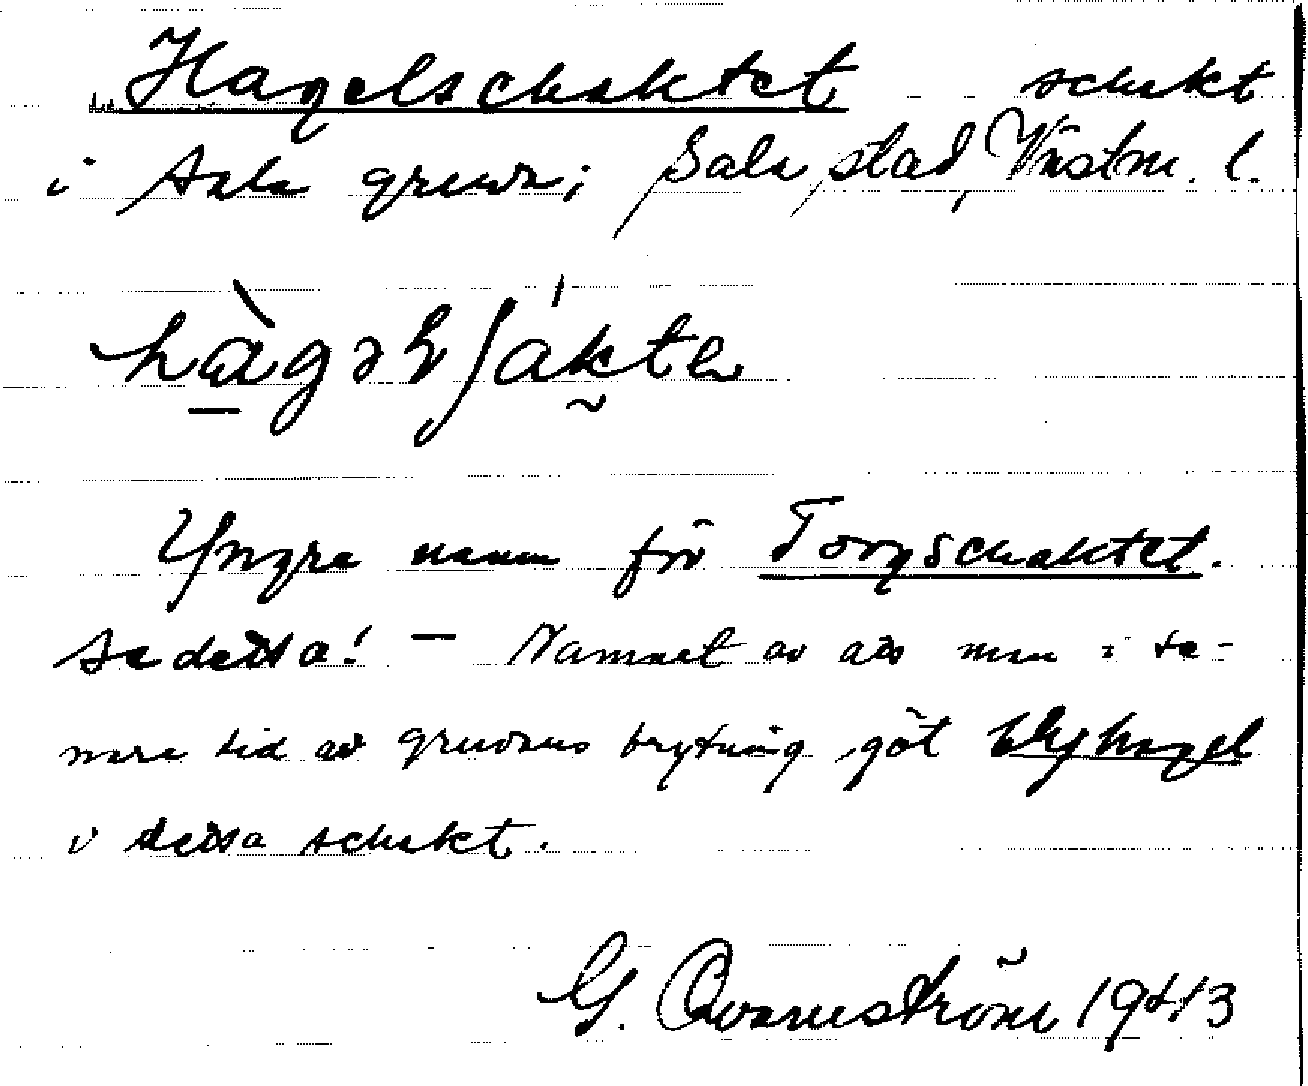 Hagelschaktet schakt
i Sala gruva; Sala stad, Västm. l.
hàgəlʃákta
Yngre namn för Torgschaktet.
Se detta! — Namnet av att man i se-
nare tid av gruvans brytning göt blyhagel
i detta schakt.
G. Qvarnström 1943